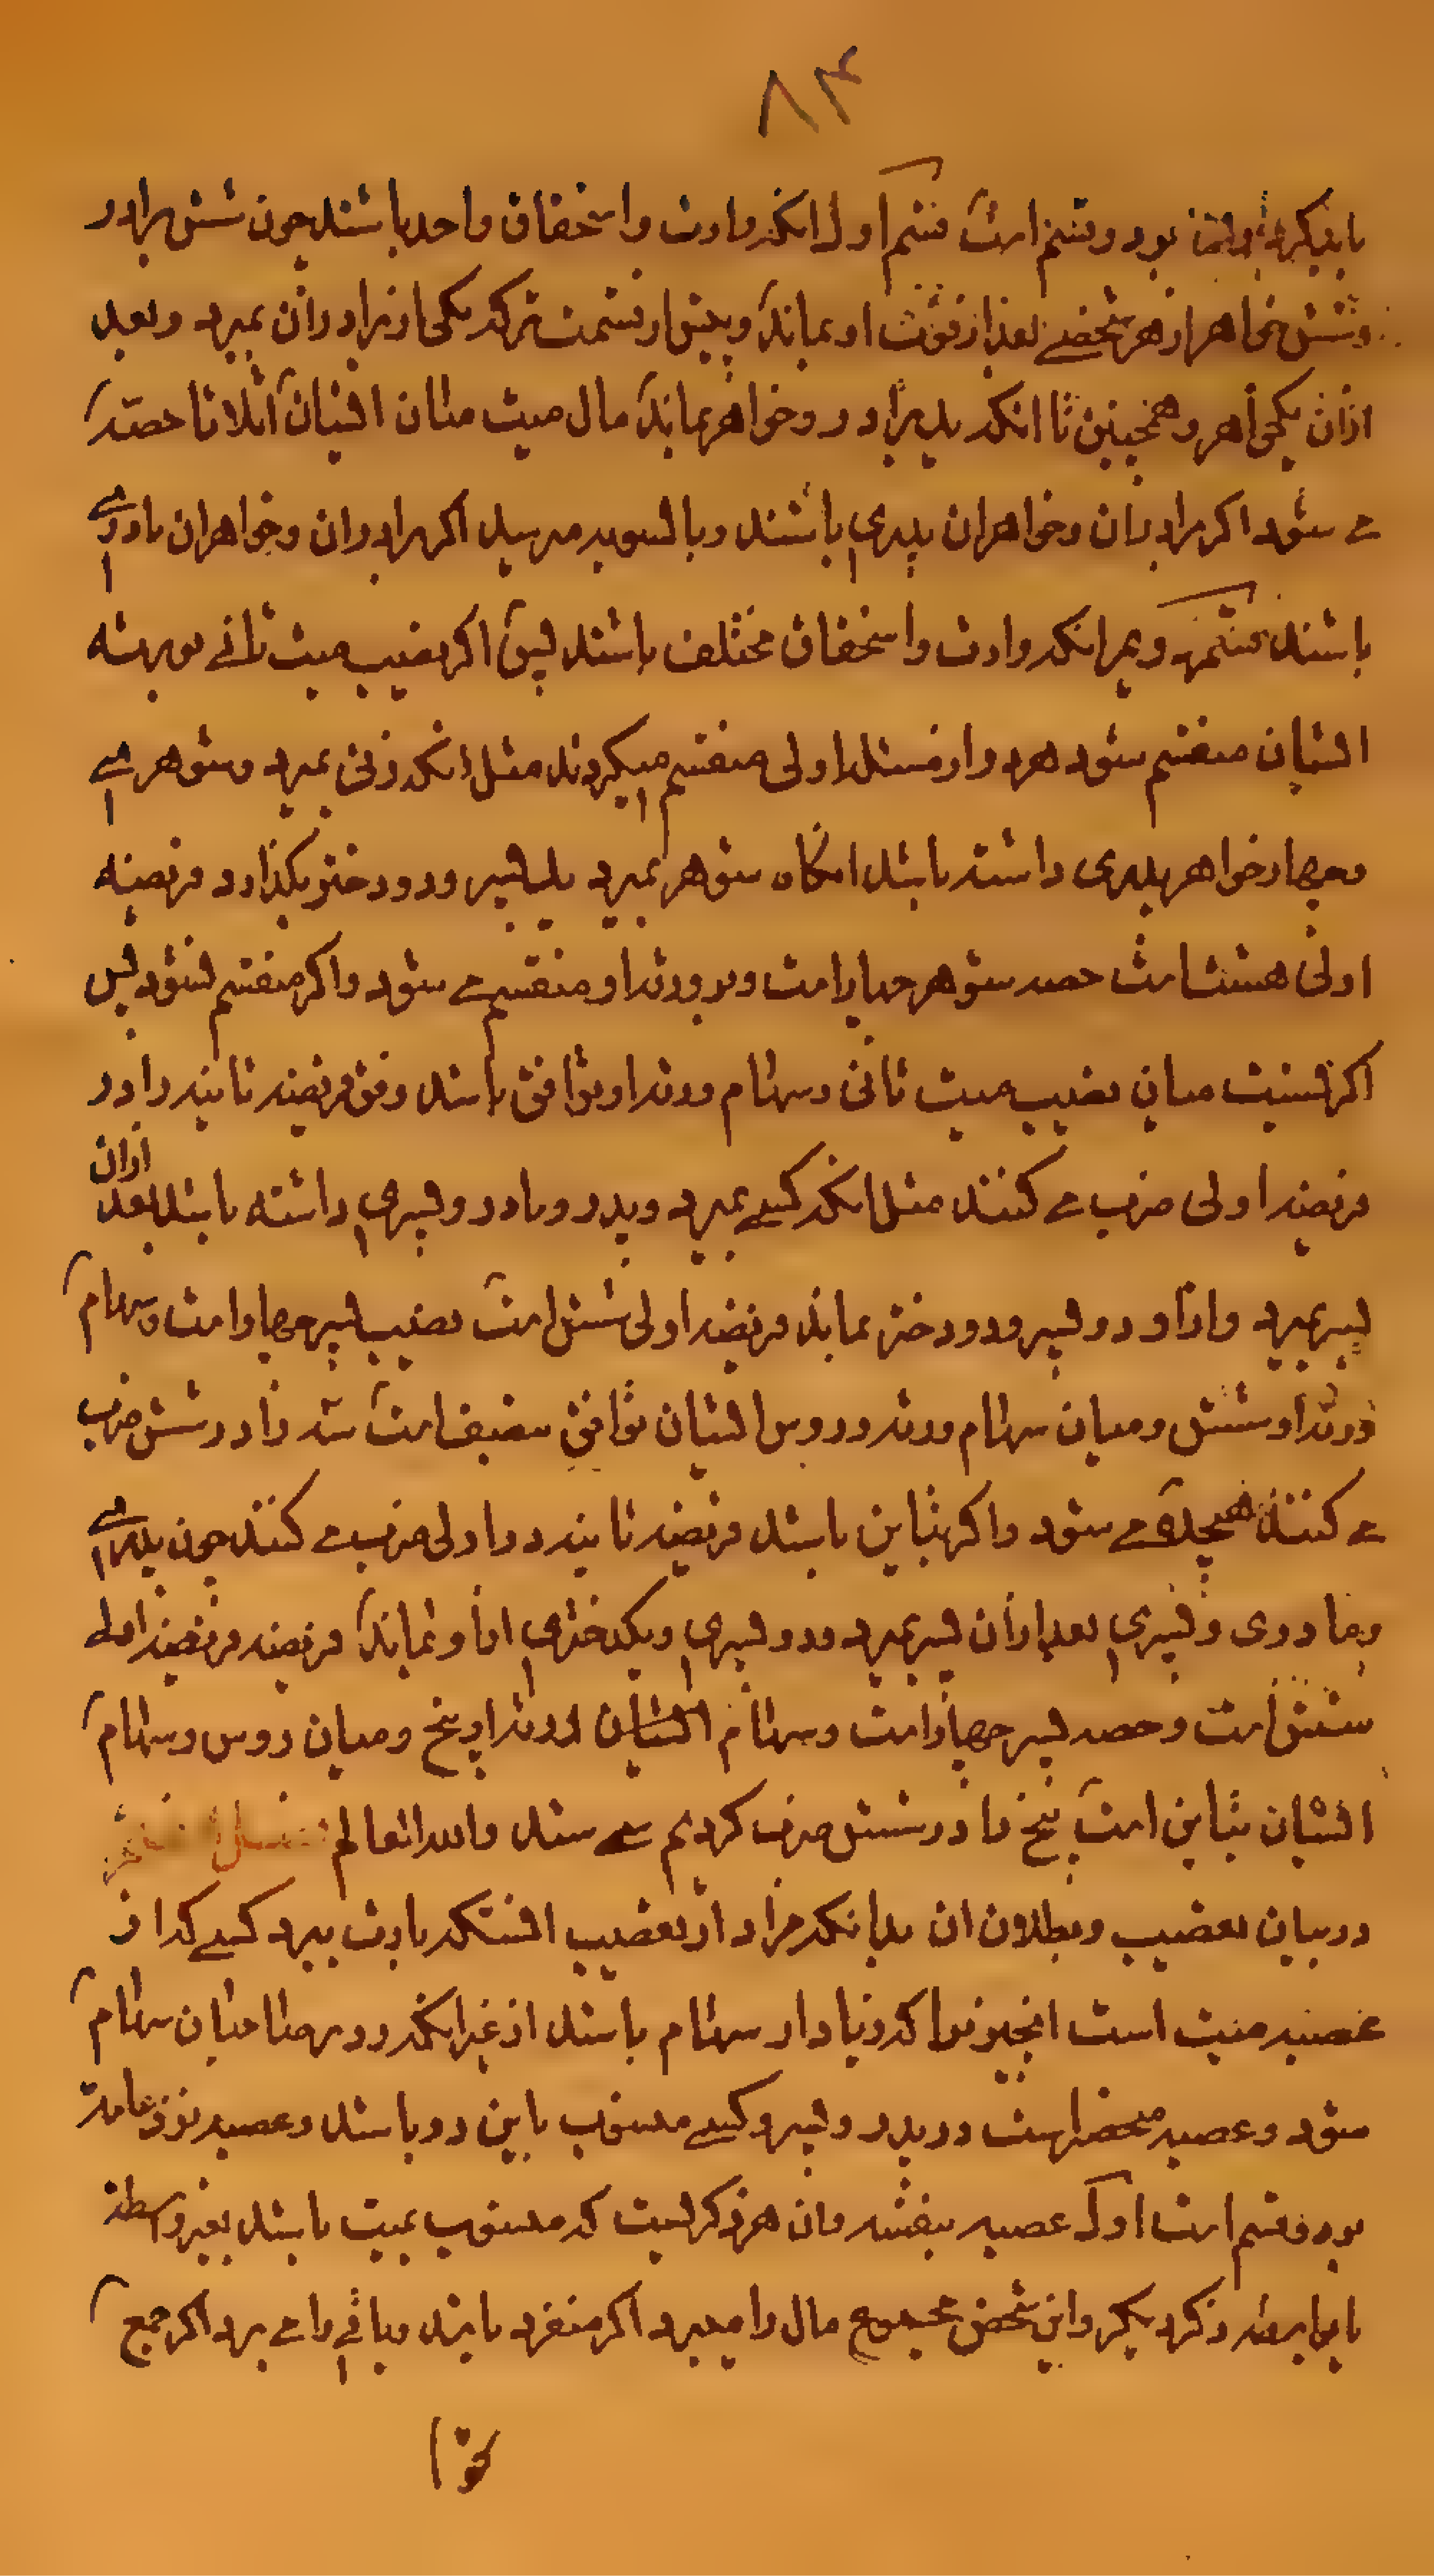 ۸۴
یا بدیگری و این بر دو قسم است قسم اول انکه وارث و استحقاق واحد باشند چون شش برادر
و شش خواهر از هر شخصی بعد از فوت او بماند و پیش از قسمت ترکه یکی از برادران بمیرد و بعد
ازان یکخواهر و همچنین تا انکه یک برادر و خواهر بماند مال میت میان ایشان اثلاثا حصه
می شود اکر برادران و خواهران پدری باشند و بالسویه میرسد اکر برادران و خواهران مادری
باشند قسم دویم انکه وارث و استحقاق مختلف باشند پس اکر نصیب میت ثانی بورثه
ایشان منقسم شود هر دو از مسئله اولی منقسم میکردند مثل انکه زنی بمیرد و شوهری
و چهار خواهر پدری داشته باشد انکاه شوهر بمیرد یک پسر و دو دختر بکذارد فریضه
اولی هشت است حصه شوهر چهار است و بر ورثه او منقسم می شود و اکر منقسم نشود پس
اکر نسبت میان نصیب میت ثانی و سهام ورثه او توافق باشد وفق فریضه ثانیه را در
فریضه اولی ضرب می کنند مثل انکه کسی بمیرد و پدر و مادر و پسری داشته باشد بعد ازان
پسر بمیرد و از او دو پسر و دو دختر بماند فریضه اولی شش است نصیب پسر چهار است و سهام
ورثه او شش و میان سهام ورثه و رؤس ایشان توافق بنصف است سه را در شش ضرب
می کنند هیجده می شود و اکر تباین باشد فریضه ثانیه در اولی ضرب می کنند چون پدری
و مادری و پسری بعد ازان پسر بمیرد و دو پسری و یکدختری از او بماند فریضه فریضه اولی
شش است و حصه پسر چهار است و سهام ایشان ورثه او پنج و میان رؤس و سهام
ایشان تباین است پنج را در شش ضرب کردیم سی شد والله العالم
در بیان تعصیب و بطلان ان بدانکه مراد از تعصیب انستکه بارث ببرد کسی که از
عصبه میت است انچیزیرا که زیاد از سهام باشد از غیر انکه رد بر صاحبان سهام
شود و عصبه منحصر است در پدر و پسر و کسی منسوب باین دو باشد و عصبه نزد عامه
بر دو قسم است اول عصبه بنفسه و ان هر ذکریست که منسوب بمیت باشد بغیر واسطه
یا بواسطه ذکر دیکر و این شخص مجموع مال را میبرد اکر منفرد باشد و باقی را می برد اکر جمع